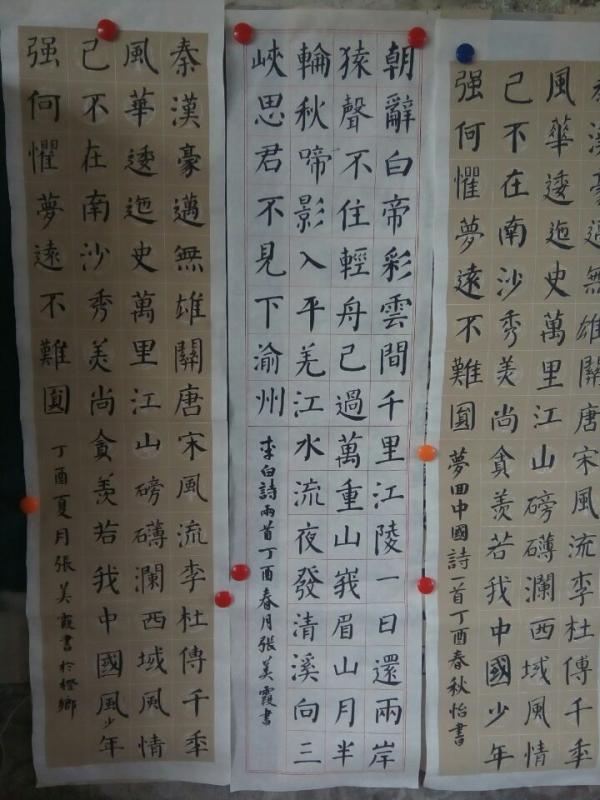 秦漢豪邁無雄關唐宋風流李杜傳千年
風華逶迤史萬里江山磅礴瀾西域風情
己不在南沙秀美尚貪羨若我中國少年
强何懼夢遠不難圓
夢回中國詩一首丁酉春秋怡書
朝辭白帝彩雲間千里江陵一日還兩岸
猿聲不住輕舟己過萬重山峩眉山月半
輪秋啼影入平羌江水流夜發清溪向三
峽思君不見下渝州
李白詩兩首丁酉春月張美霞書
秦漢豪邁無雄關唐宋風流李杜傳千年
風華逶迤史萬里江山磅礴瀾西域風情
己不在南沙秀美尚貪羨若我中國風少年
强何懼夢遠不難圓
丁酉夏月張美霞書於橙鄉